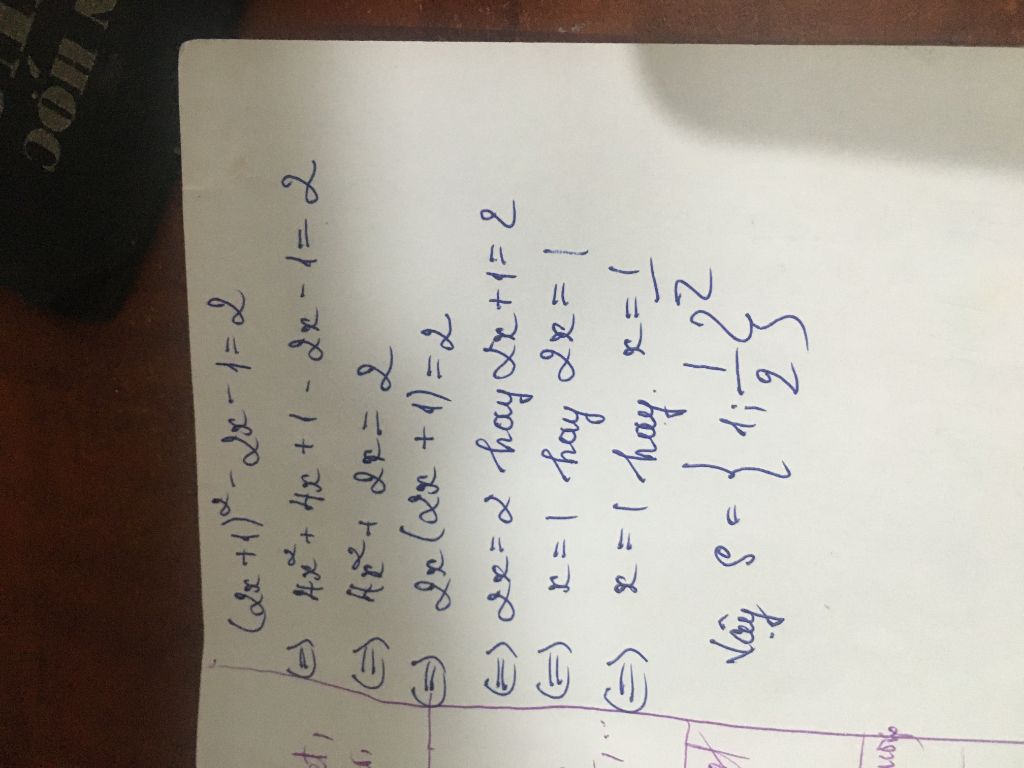 (2x+1)² - 2x - 1 = 2
(=) 4x² + 4x + 1 - 2x - 1 = 2
(=) 4x² + 2x = 2
(=) 2x(2x + 1) = 2
(=) 2x = 2 hay 2x + 1 = 2
(=) x = 1 hay 2x = 1
(=) x = 1 hay x = 1/2
Vậy S = { 1; 1/2 }
HỌC